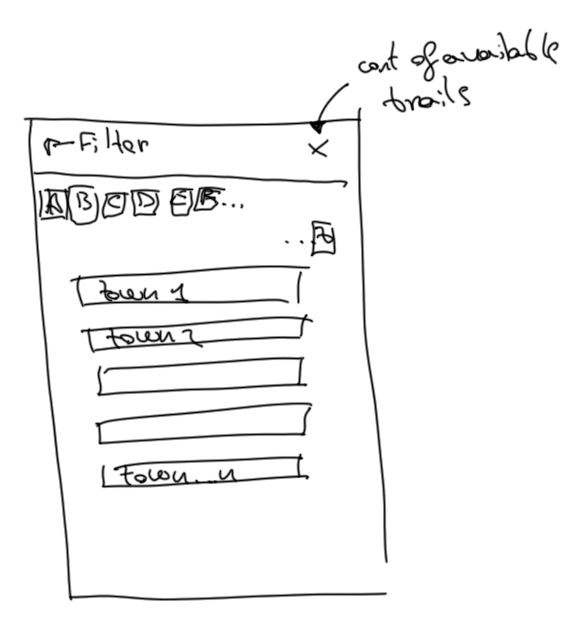 cont of available
trails
Filter
X
A B C D E F...
...Z
town 1
town 2
town...n